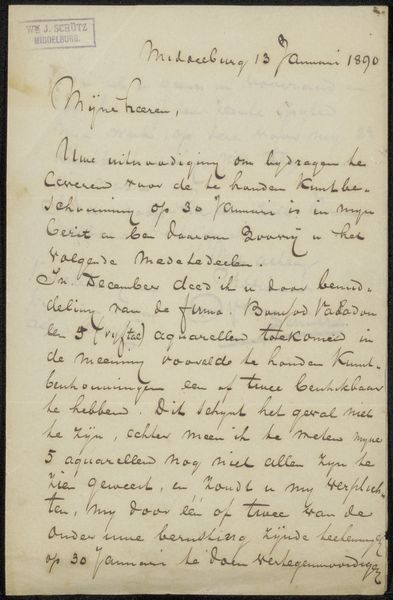 Wm J. SCHÜTZ
MIDDELBURG.
Middelburg 13 Januari 1890
Mijne heeren,
Uwe uitnoodiging om bydragen te
leveren voor de te houden Kunstbe-
schouwing op 30 Januari is in myn
bezit en ben daarom zoovrij u het
volgende mede te deelen.
In December deed ik u door bemid-
deling van de firma
een 5 (vyftal) aquarellen toekomen in
de meening voor de te houden Kunst-
beschouwingen een of twee beschikbaar
te hebben. Dit schynt het geval niet
te zyn, echter meen ik te weten myne
5 aquarellen nog niet allen zyn te
zien geweest, en zoudt u my verplich-
ten, my door één of twee van de
onder uwe berusting zynde teekeningen
op 30 Januari te doen vertegenwoordigen